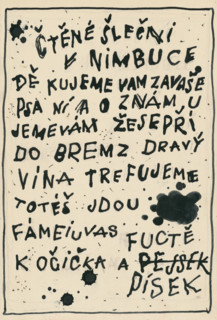 ČTĚNÉ ŠLEČNI
V NIMBUCE
DĚ KUJEME VAM ZAVAŠE
PSA NÍ A O ZNÁM, U
JEMEVÁM ŽESEPŘÍ
DO BREM Z DRAVÝ
VÍNA TREFUJEME
TOTĚŠ JDOU
FÁMEIUVAS FUCTĚ
KOČIČKA A PEJSEK
PÍSEK